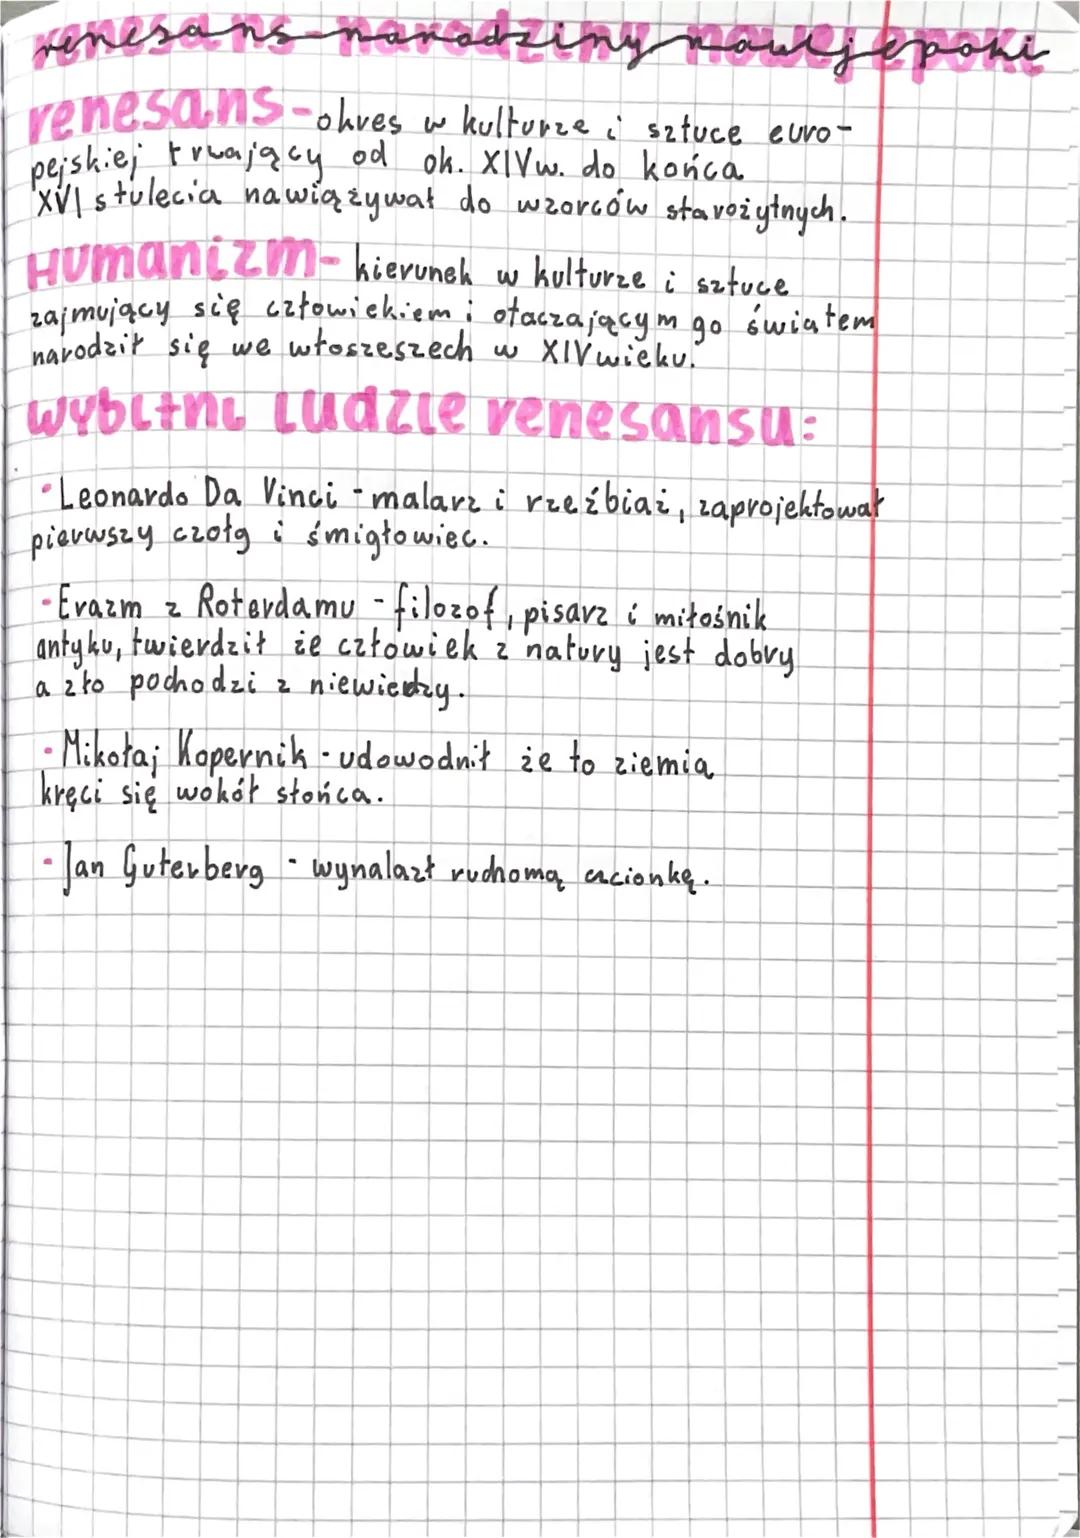 renesans-narodziny nowej epoki
renesans-okres w kulturze i sztuce euro-
pejskiej trwający od ok. XIVw. do końca
XVI stulecia nawiązywał do wzorców starożytnych.
Humanizm- kierunek w kulturze i sztuce
zajmujący się człowiekiem i otaczającym go światem
narodził się we włoszeszech w XIVwieku.
wybitni Ludzie renesansu:
·Leonardo Da Vinci -malarz i rzeźbiaż, zaprojektował
pierwszy czołg i śmigłowiec.
·Erazm z Roterdamu -filozof, pisarz i miłośnik
antyku, twierdził że człowiek z natury jest dobry
a zło pochodzi z niewiedzy.
·Mikołaj Kopernik -udowodnił że to ziemia
kręci się wokół słońca.
·Jan Guterberg - wynalazł ruchomą czcionkę.